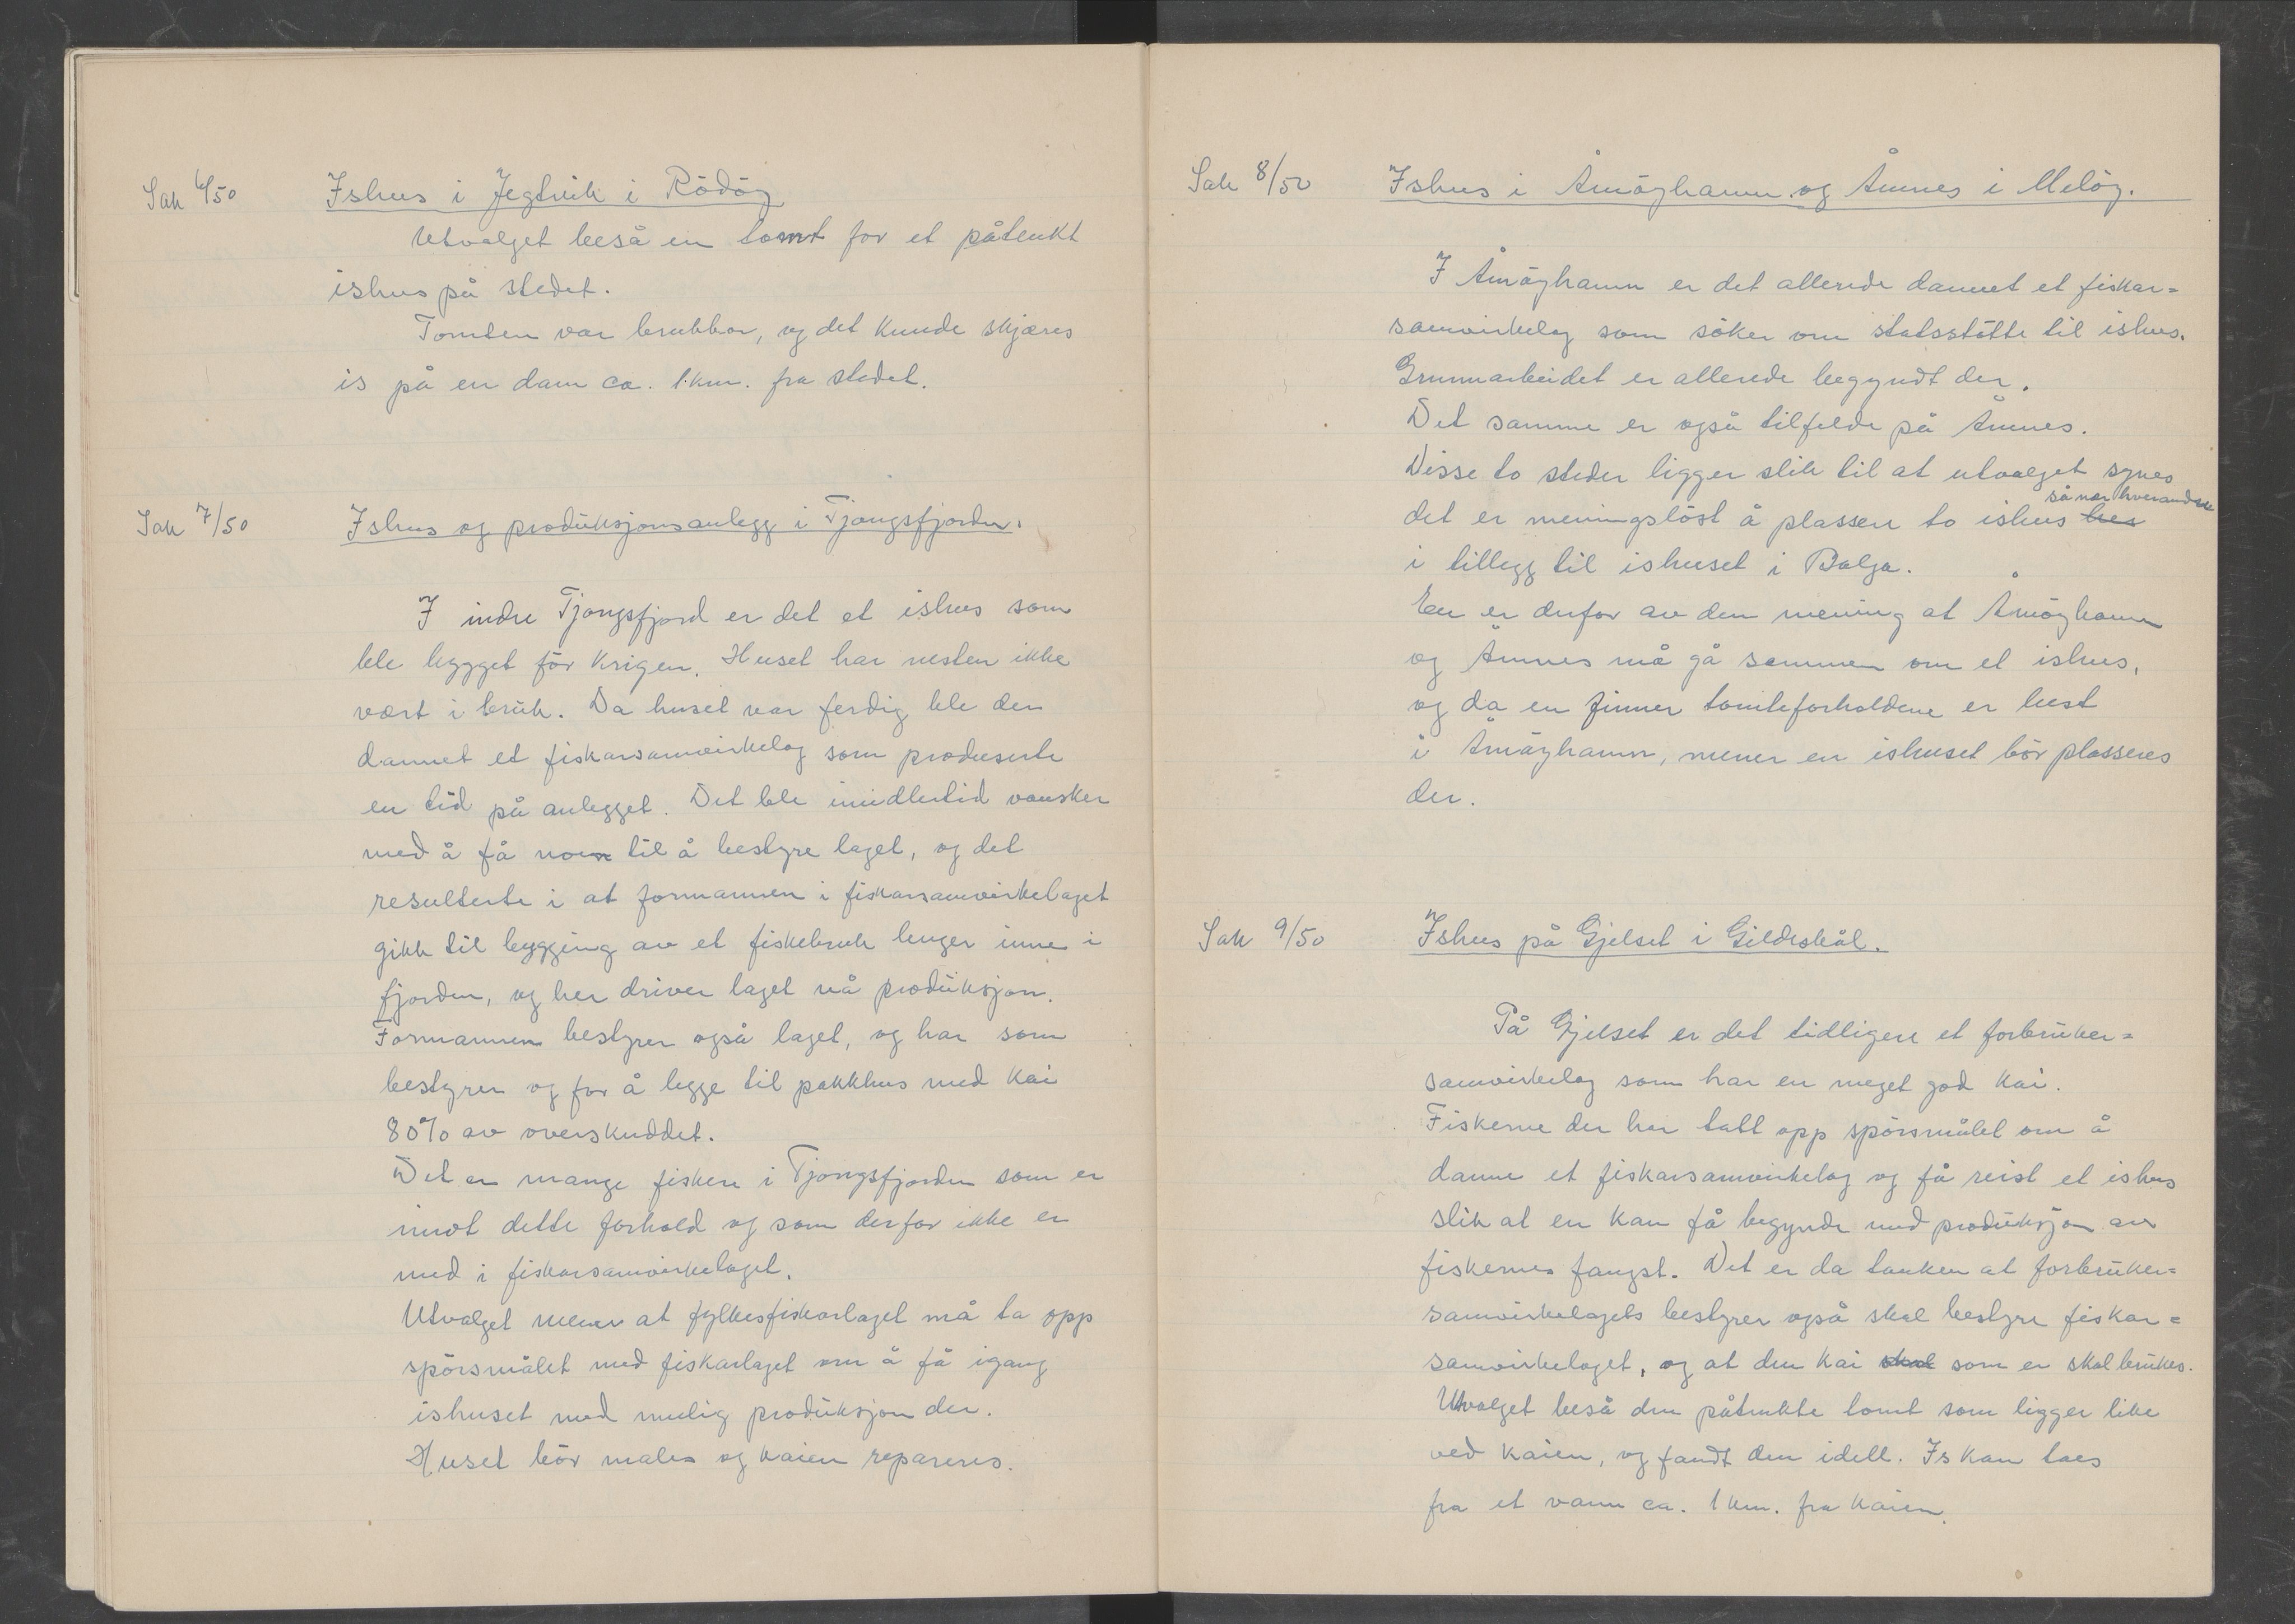 Sak 6/50 Ishus i Jegtvik i Rödöy
Utvalget beså en tomt for et påtenkt
ishus på stedet.
Tomten var brukbar, og det kunde skjæres
is på en dam ca. 1 km. fra stedet.
Sak 7/50 Ishus og produksjonsanlegg i Tjongsfjorden.
I indre Tjongsfjord er det et ishus som
ble bygget för krigen. Huset har nesten ikke
vært i bruk. Da huset var ferdig ble der
dannet et fiskarsamvirkelag som produserte
en tid på anlegget. Det ble imidlertid vansker
med å få noen til å bestyre laget, og det
resulterte i at formannen i fiskarsamvirkelaget
gikk til bygging av et fiskebruk lenger inne i
fjorden, og her driver laget nå produksjon.
Formannen bestyrer også laget, og har som
bestyrer og for å legge til pakkhus med kai
80% av overskuddet.
Det er mange fiskere i Tjongsfjorden som er
imot dette forhold og som derfor ikke er
med i fiskarsamvirkelaget.
Utvalget mener at fylkesfiskarlaget må ta opp
spörsmålet med fiskarlaget om å få igang
ishuset med mulig produksjon der.
Huset bör males og kaien repareres.
Sak 8/50 Ishus i Åmöyhamn og Åmnes i Melöy.
I Åmöyhamn er det allerede dannet et fiskar=
samvirkelag som söker om statsstötte til ishus.
Grunnarbeidet er allerede begyndt der.
Det samme er også tilfelde på Åmnes.
Disse to steder ligger slik til at utvalget synes
så nær hverandre
det er meningslöst å plassere to ishus her
i tillegg til ishuset i Bolga.
En er derfor av den mening at Åmöyhamn
og Åmnes må gå sammen om et ishus,
og da en finner tomteforholdene er best
i Åmöyhamn, mener en ishuset bör plasseres
der.
Sak 9/50 Ishus på Gjelset i Gildeskål.
På Gjelset er det tidligere et forbruker=
samvirkelag som har en meget god kai.
Fiskerne der har tatt opp spörsmålet om å
danne et fiskarsamvirkelag og få reist et ishus
slik at en kan få begynde med produksjon av
fiskernes fangst. Det er da tanken at forbruker=
samvirkelagets bestyrer også skal bestyre fiskar=
samvirkelaget, og at den kai skal som er skal brukes.
Utvalget beså den påtenkte tomt som ligger like
ved kaien, og fandt den idell. Is kan taes
fra et vann ca. 1 km. fra kaien.